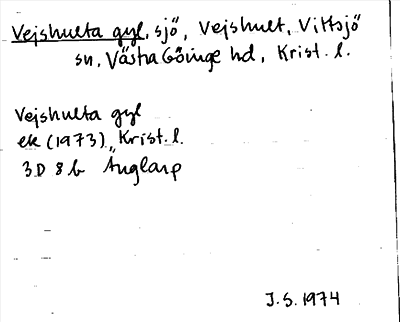 Vejshulta gyl, sjö, Vejshult, Vittsjö
sn, Västra Göinge hd, Krist. l.
Vejshulta gyl
ek (1973), Krist. l.
3D 8b Änglarp
J.S. 1974